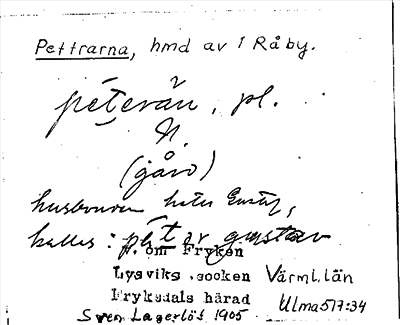 Pettrarna, hmd av 1 Råby.
péterån, pl.
N.
(gård)
husbonden heter Gustaf,
kallas: petər gustav
f. om Fryken
Lysviks socken Värml. län
Fryksdals härad
Sven Lagerlöf 1905 Ulma 517:34